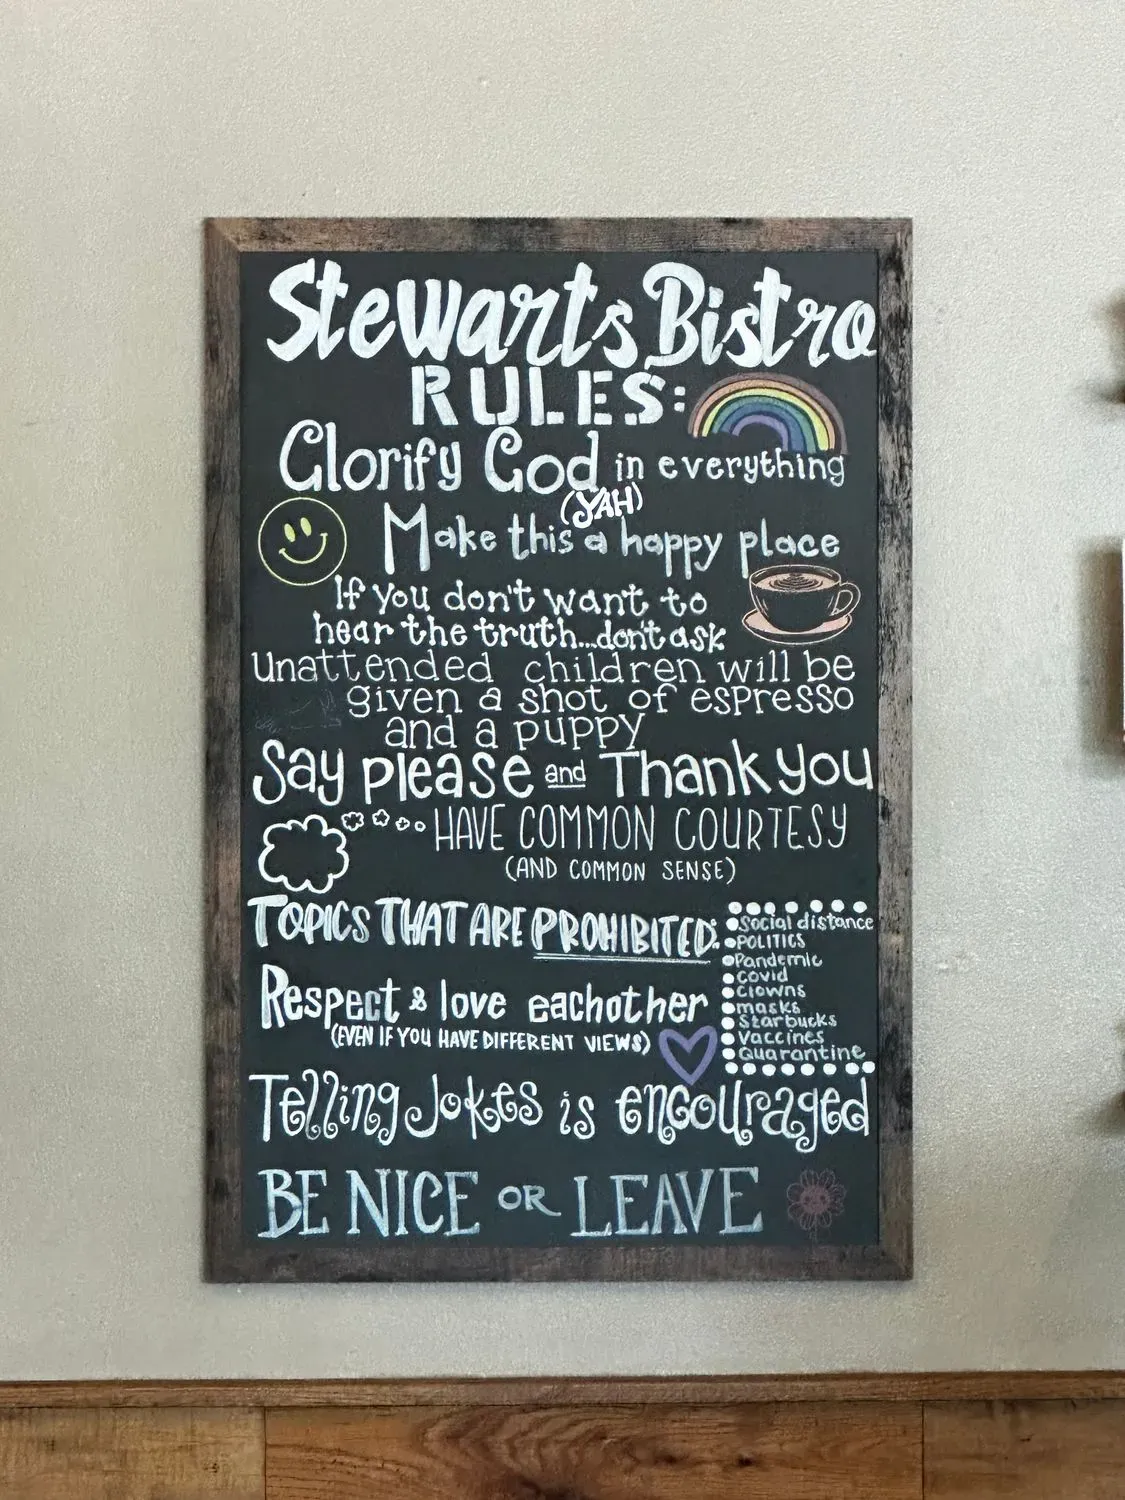 Stewarts Bistro
RULES:
Glorify God in everything
(YAH)
Make this a happy place
If you don't want to
hear the truth...don't ask
Unattended children will be
given a shot of espresso
and a puppy
Say please and Thank you
HAVE COMMON COURTESY
(AND COMMON SENSE)
TOPICS THAT ARE PROHIBITED:
Social distance
POLITICS
Pandemic
Covid
Clowns
masks
Starbucks
Vaccines
Quarantine
Respect & love eachother
(EVEN IF YOU HAVE DIFFERENT VIEWS)
Telling Jokes is encouraged
BE NICE OR LEAVE